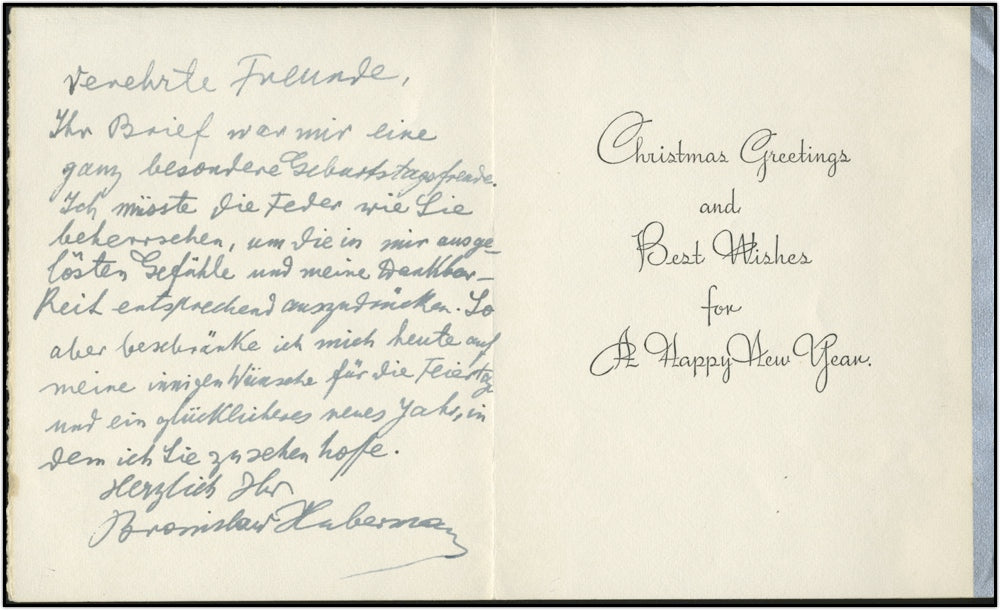 Verehrte Freunde,
Ihr Brief war mir eine
ganz besondere Geburtstagsfreude.
Ich müsste die Feder wie Sie
beherrschen, um die in mir ausge-
lösten Gefühle und meine Dankbar-
keit entsprechend auszudrücken. So
aber beschränke ich mich heute auf
meine innigen Wünsche für die Feiertage
und ein glücklicheres neues Jahr, in
dem ich Sie zu sehen hoffe.
Herzlich Ihr
Bronislaw Huberman
Christmas Greetings
and
Best Wishes
for
A Happy New Year.